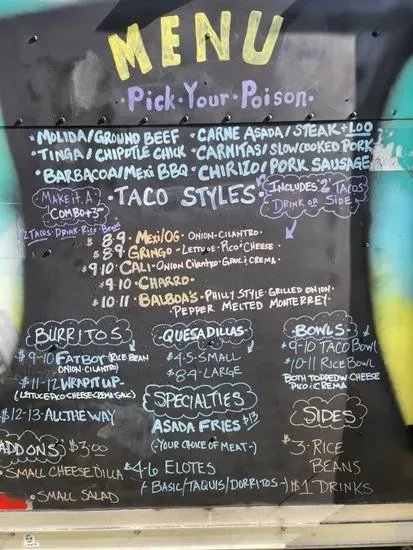 MENU
Pick·Your·Poison·
·MOLIDA/GROUND BEEF
·TINGA/CHIPOTLE CHICK
·BARBACOA/MEXI BBQ
·CARNE ASADA/STEAK+1.00
·CARNITAS/SLOW COOKED PORK
·CHIRIZO/PORK SAUSAGE
MAKE IT A
COMBO+3⁰⁰
2 TACOS·DRINK·RICE·BEANS
·TACO STYLES·
INCLUDES 2 TACOS
DRINK OR SIDE
$8·9·MEXI/OG·ONION·CILANTRO·
$8·9·GRINGO·LETTUCE·PICO & CHEESE·
$9·10·CALI·ONION CILANTRO·GAUC & CREMA·
$9·10·CHARRO·
$10·11·BALBOA'S·PHILLY STYLE·GRILLED ONION·
PEPPER MELTED MONTERREY·
BURRITOS
$9-10 FATBOY (RICE BEAN
ONION·CILANTRO)
$11-12 WRAPITUP-
(LETTUCE PICO·CHEESE·CREMA·GAUC)
$12-13·ALL THE WAY
QUESADILLAS
$4·5·SMALL
$8·9·LARGE
BOWLS
$9-10 TACO BOWL
$10-11 RICE BOWL
BOTH TOPPED W/CHEESE
PICO & CREMA
SPECIALTIES
ASADA FRIES $13
(-YOUR CHOICE OF MEAT-)
$4-6 ELOTES
(-BASIC/TAQUIS/DORRITOS-)
SIDES
$3·RICE
BEANS
$1 DRINKS
ADD ONS $3.00
·SMALL CHEESE DILLA
·SMALL SALAD